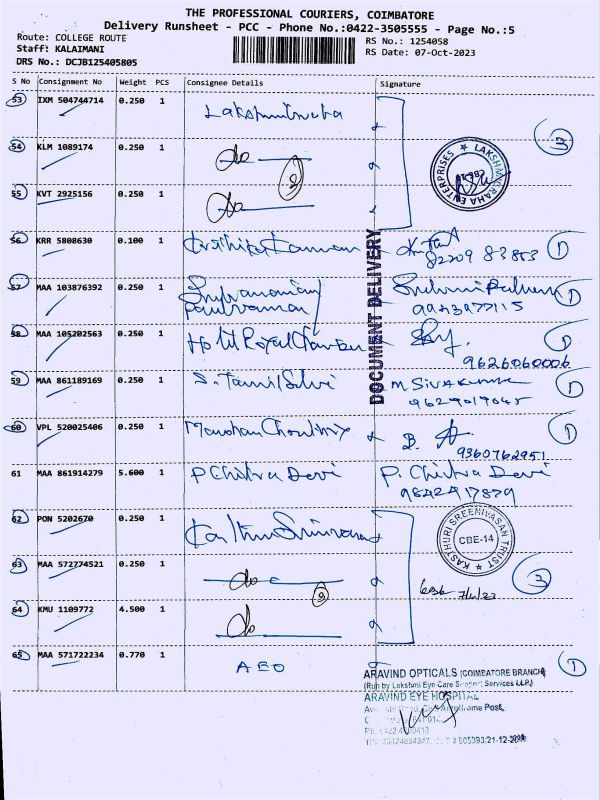 THE PROFESSIONAL COURIERS, COIMBATORE
Delivery Runsheet - PCC - Phone No.:0422-3505555 - Page No.:5
Route: COLLEGE ROUTE
Staff: KALAIMANI
DRS No.: DCJB125405805
RS No.: 1254058
RS Date: 07-Oct-2023
S No Consignment No Weight PCS Consignee Details Signature
53 IXM 504744714 0.250 1
54 KLM 1089174 0.250 1 do
LAKSHMI
ENTERPRISES
55 KVT 2925156 0.250 1 do
3
56 KRR 5808630 0.100 1 82209 83853 1
57 MAA 103876392 0.250 1 9943977115 1
58 MAA 105202563 0.250 1 Hotel Royal 9626060006 1
59 MAA 861189169 0.250 1 S. Tamil Selvi M. Sivakumar 9629019045 1
60 VPL 520025406 0.250 1 Manohar B. 9360762951 1
61 MAA 861914279 5.600 1 P Chitra Devi P. Chitra Devi
9842417879
DOCUMENT DELIVERY
62 PON 5202670 0.250 1
KASTHURI SREENIVASAN TRUST
CBE-14
63 MAA 572774521 0.250 1 do 3
64 KMU 1109772 4.500 1 do
65 MAA 571722234 0.770 1 AEO 1
ARAVIND OPTICALS (COIMBATORE BRANCH)
(Run by Lakshmi Eye Care Support Services LLP.)
ARAVIND EYE HOSPITAL
Post,